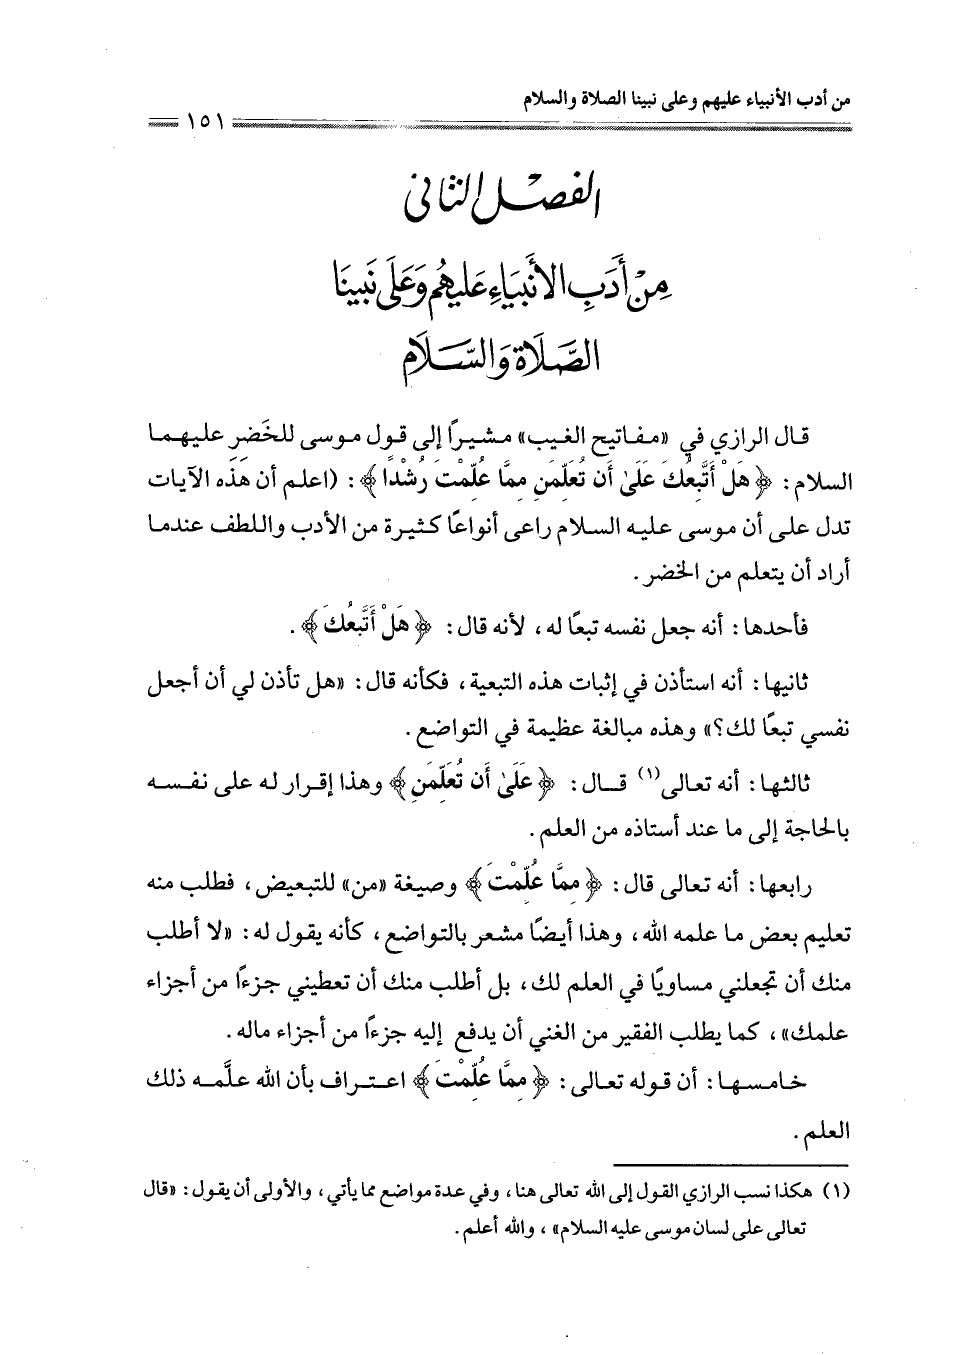 من أدب الأنبياء عليهم وعلى نبينا الصلاة والسلام
١٥١
الفصل الثاني
مِنْ أَدَبِ الأَنبِيَاءِ عَليهِم وَعَلَى نَبينَا
الصَّلَاة وَالسَّلَام
قال الرازي في «مفاتيح الغيب» مشيرًا إلى قول موسى للخَضِر عليهما
السلام: ﴿هَلْ أَتَّبِعُكَ عَلَىٰ أَن تُعَلِّمَنِ مِمَّا عُلِّمْتَ رُشْدًا﴾: (اعلم أن هذه الآيات
تدل على أن موسى عليه السلام راعى أنواعًا كثيرة من الأدب واللطف عندما
أراد أن يتعلم من الخضر.
فأحدها: أنه جعل نفسه تبعًا له، لأنه قال: ﴿هَلْ أَتَّبِعُكَ﴾.
ثانيها: أنه استأذن في إثبات هذه التبعية، فكأنه قال: «هل تأذن لي أن أجعل
نفسي تبعًا لك؟» وهذه مبالغة عظيمة في التواضع.
ثالثها: أنه تعالى(١) قال: ﴿عَلَىٰ أَن تُعَلِّمَنِ﴾ وهذا إقرار له على نفسه
بالحاجة إلى ما عند أستاذه من العلم.
رابعها: أنه تعالى قال: ﴿مِمَّا عُلِّمْتَ﴾ وصيغة «من» للتبعيض، فطلب منه
تعليم بعض ما علمه الله، وهذا أيضًا مشعر بالتواضع، كأنه يقول له: «لا أطلب
منك أن تجعلني مساويًا في العلم لك، بل أطلب منك أن تعطيني جزءًا من أجزاء
علمك»، كما يطلب الفقير من الغني أن يدفع إليه جزءًا من أجزاء ماله.
خامسها: أن قوله تعالى: ﴿مِمَّا عُلِّمْتَ﴾ اعتراف بأن الله علَّمه ذلك
العلم.
(١) هكذا نسب الرازي القول إلى الله تعالى هنا، وفي عدة مواضع مما يأتي، والأولى أن يقول: «قال
تعالى على لسان موسى عليه السلام»، والله أعلم.